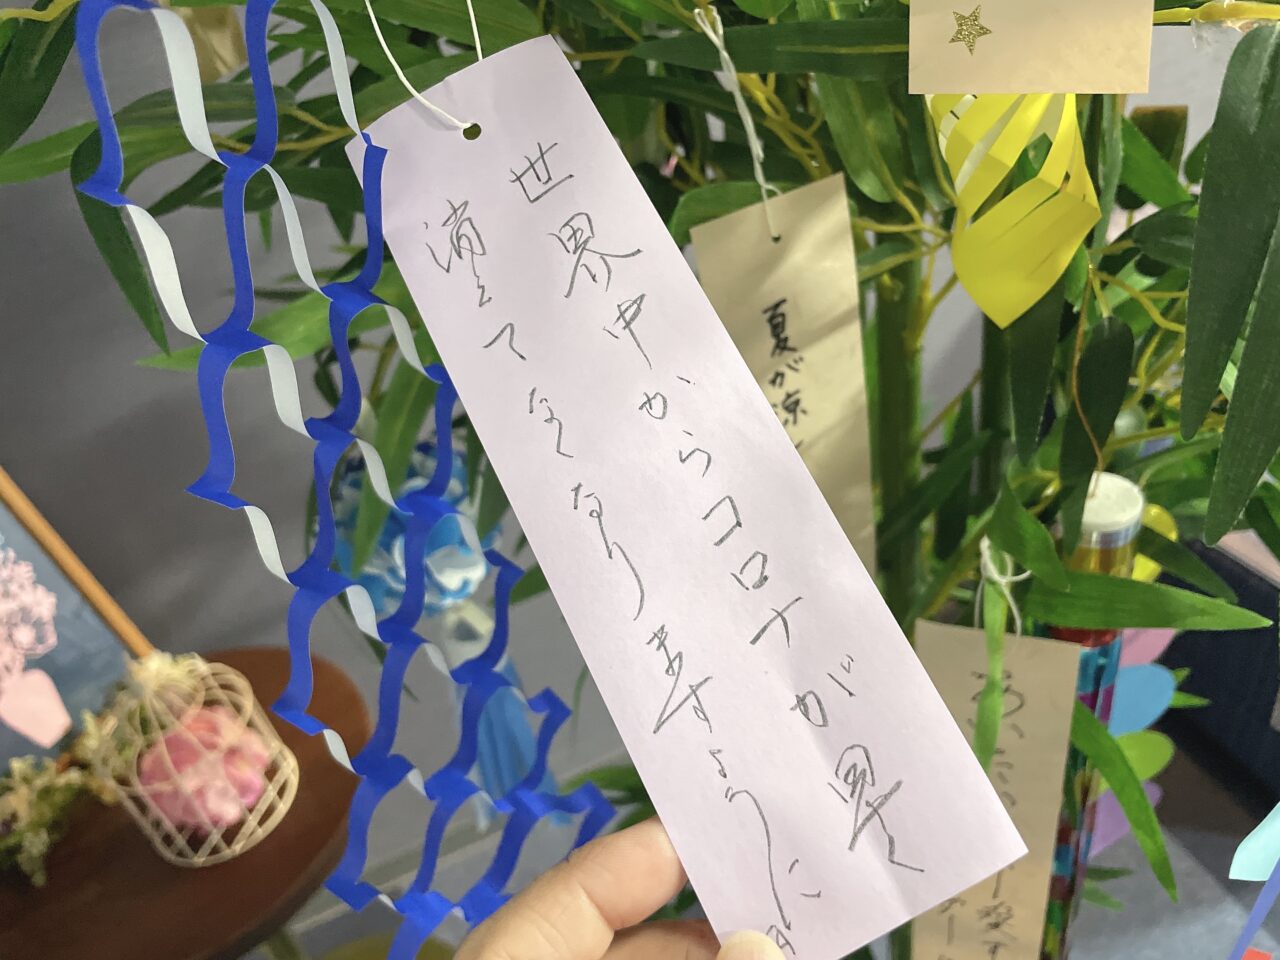 世界中からコロナが早く
消えてなくなりますように
夏が涼